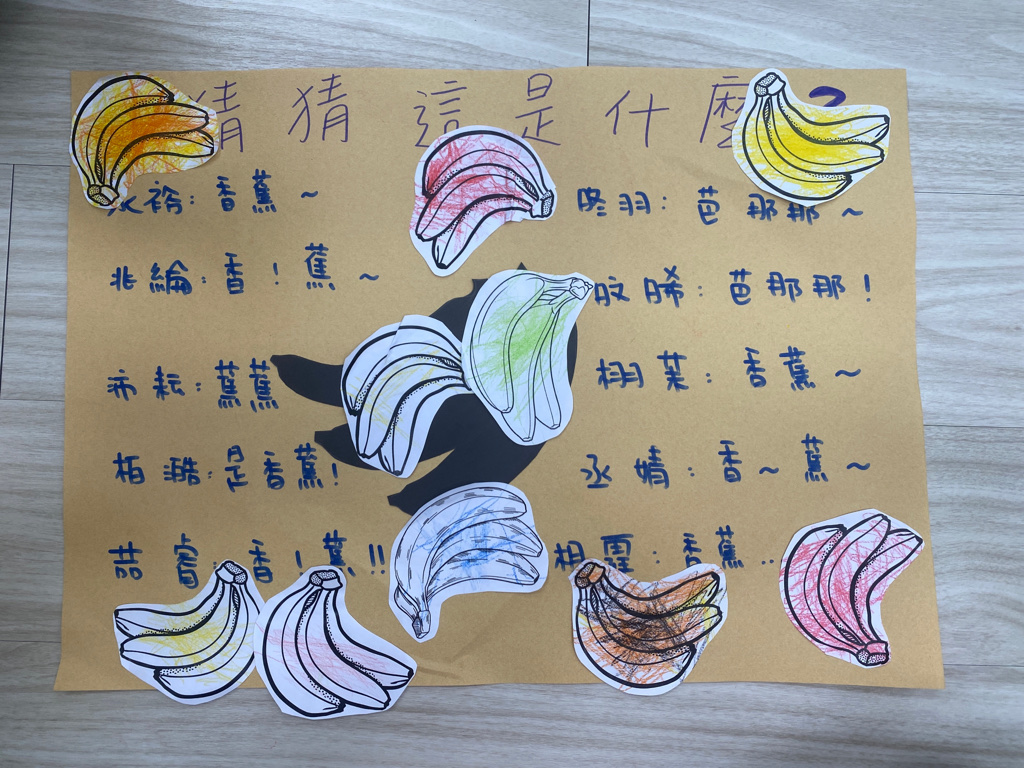 猜猜這是什麼?
永衿:香蕉~
咚羽:芭那那~
兆綸:香!蕉~
旼晞:芭那那!
沛耘:蕉蕉
栩菓:香蕉~
栢澔:是香蕉!
丞婧:香~蕉~
喆睿:香!蕉!!
柏霆:香蕉..